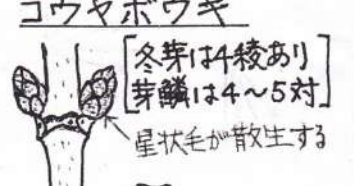 コウヤボウキ
冬芽は4稜あり
芽鱗は4～5対
星状毛が散生する